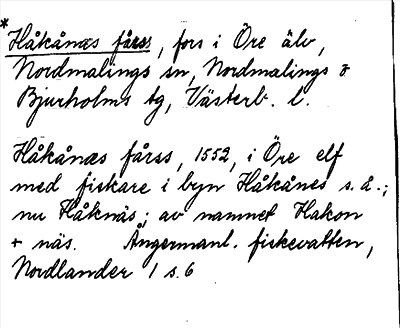 * Håkånæs fårss, fors i Öre älv,
Nordmalings sn, Nordmalings o
Bjurholms tg, Västerb. l.
Håkånæs fårss, 1552, i Öre elf
med fiskare i byn Håkånes s. å.;
nu Håknäs; av namnet Hakon
+ näs. Ångermanl. fiskevatten,
Nordlander 1 s. 6